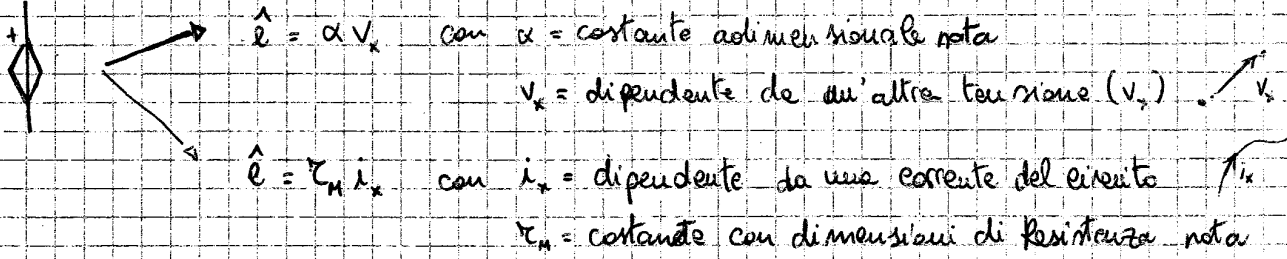 +
ê = α Vx con α = costante adimensionale nota
Vx = dipendente da un'altra tensione (Vx) Vx
ê = rM ix con ix = dipendente da una corrente del circuito ix
rM = costante con dimensioni di Resistenza nota